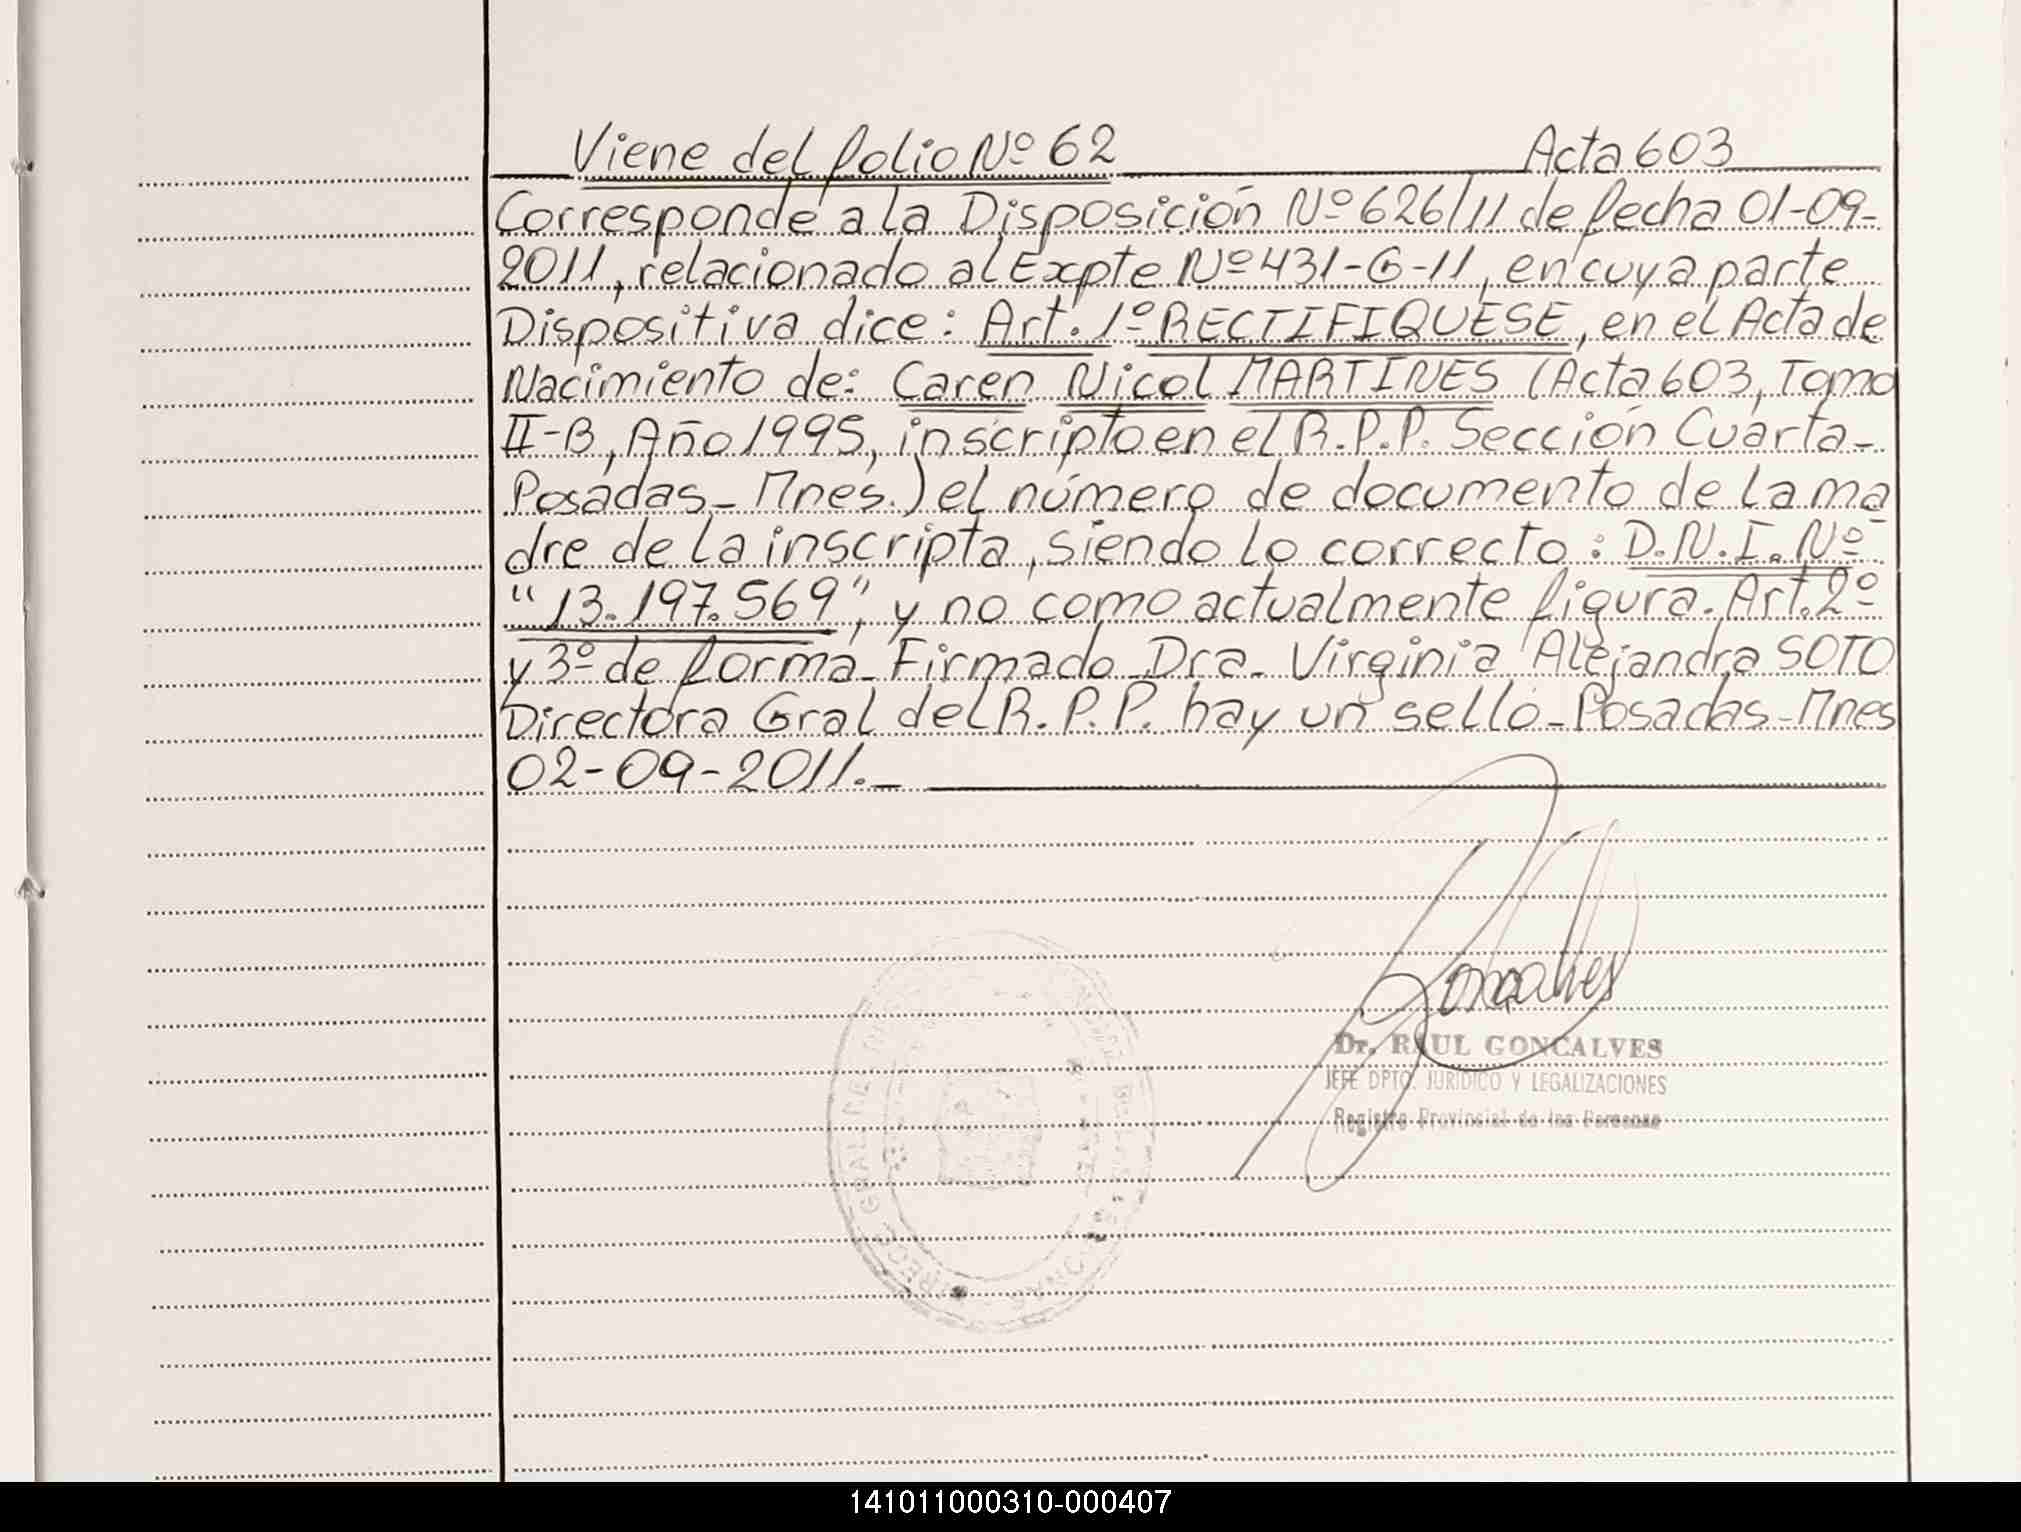 Viene del folio Nº 62 Acta 603
Corresponde a la Disposición Nº 626/11 de fecha 01-09-
2011, relacionado al Expte Nº 431-G-11, en cuya parte
Dispositiva dice: Art. 1º RECTIFIQUESE, en el Acta de
Nacimiento de: Caren Nicol MARTINES (Acta 603, Tomo
II-B, Año 1995, inscripto en el R.P.P. Sección Cuarta-
Posadas-Mnes.) el número de documento de la ma
dre de la inscripta, siendo lo correcto: D.N.I. Nº-
"13.197.569", y no como actualmente figura. Art. 2º
y 3º de forma- Firmado Dra- Virginia Alejandra SOTO
Directora Gral del R.P.P. hay un sello-Posadas-Mnes
02-09-2011.-
Goncalves
Dr. RAUL GONCALVES
JEFE DPTO. JURIDICO Y LEGALIZACIONES
Registro Provincial de las Personas
141011000310-000407